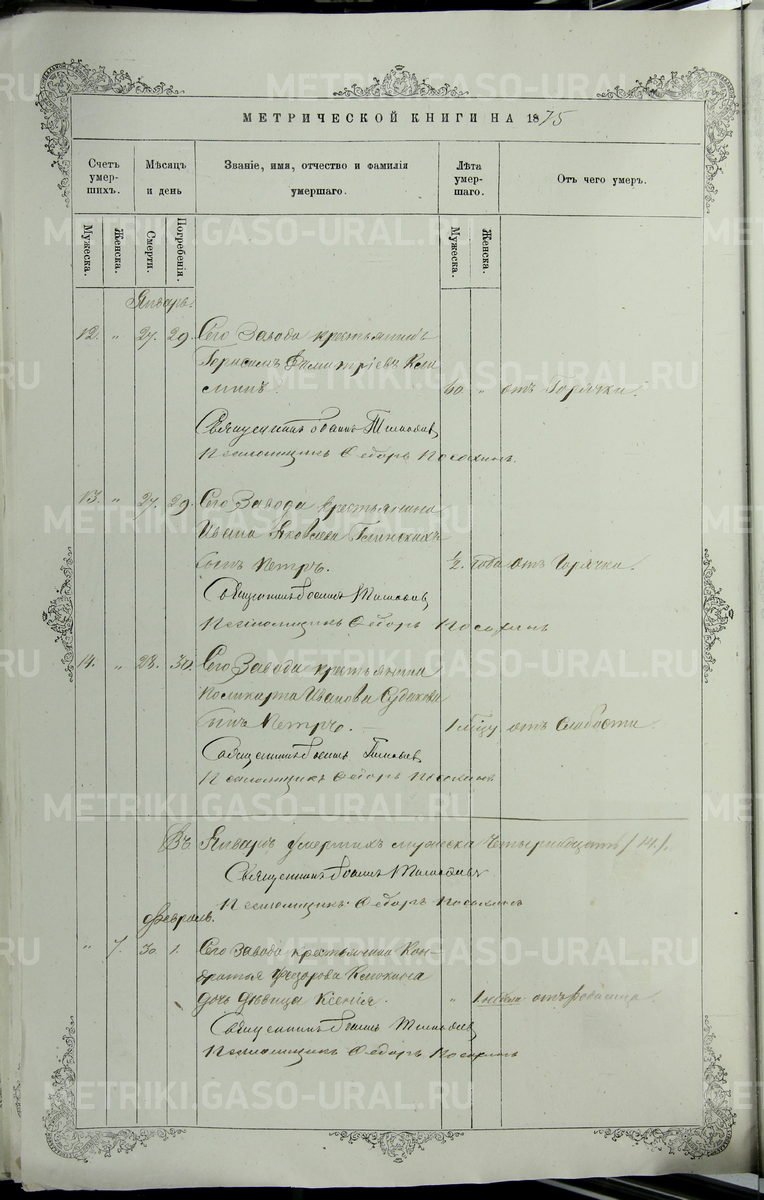 МЕТРИЧЕСКОЙ КНИГИ НА 1875
Счетъ умер-шихъ.
Мѣсяцъ и день
Званіе, имя, отчество и фамилія умершаго.
Лѣта умер-шаго.
Отъ чего умеръ.
Мужеска.
Женска.
Смерти.
Погребенія.
Мужеска.
Женска.
Январь.
12. " 27. 29. Сего Завода крестьянинъ
Герасимъ Димитріевъ
60 " отъ Горячки.
Священникъ Іоаннъ
Псаломщикъ Ѳедоръ Посохинъ.
13. " 27. 29. Сего Завода крестьянина
Ивана Яковлева Глинскихъ
сынъ Петръ. 1/2 года отъ Горячки.
Священникъ Іоаннъ
Псаломщикъ Ѳедоръ Посохинъ
14. " 28. 30. Сего Завода крестьянина
Поликарпа Иванова Судакова
сынъ Петръ. 1 мѣс. отъ Слабости.
Священникъ Іоаннъ
Псаломщикъ Ѳедоръ Посохинъ
Въ Январѣ умершихъ мужеска четырнадцать /14./
Священникъ Іоаннъ
Псаломщикъ Ѳедоръ Посохинъ
Февраль.
" 7. 30. 1. Сего Завода крестьянина Кон-
дратья Ѳедорова
дочь дѣвица Ксенія. " 1 отъ родимца.
Священникъ Іоаннъ
Псаломщикъ Ѳедоръ Посохинъ
METRIKI.GASO-URAL.RU